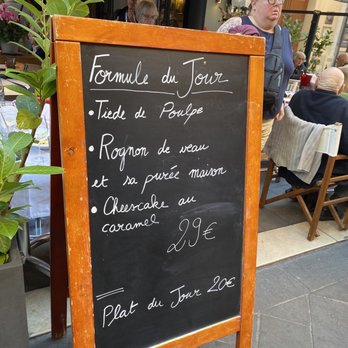 Formule du Jour
• Tiede de Poulpe
• Rognon de veau
et sa purée maison
• Cheescake au
caramel
29€
Plat du Jour 20€